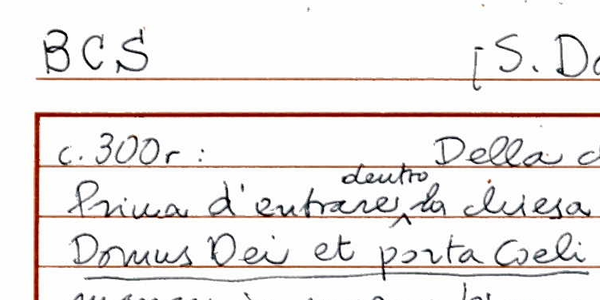 BCS [S. Do
c. 300r: Della c
Prima d'entrare dentro la chiesa
Domus Dei et porta Coeli